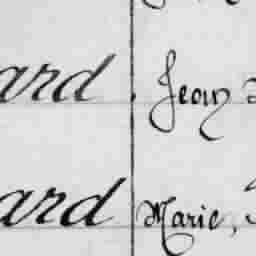 ard. Jean
ard Marie,